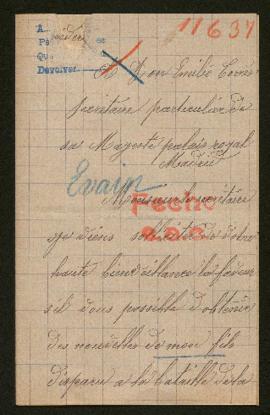 11637
A
Devolver
A Don Emilio
Secrétaire particulier de
sa Majesté palais royal
Madrid
Evain
Monsieur le secrétaire
je viens solliciter de votre
haute bienveillance la faveur
s'il vous possible d'obtenir
des nouvelles de mon fils
disparu a la bataille de la